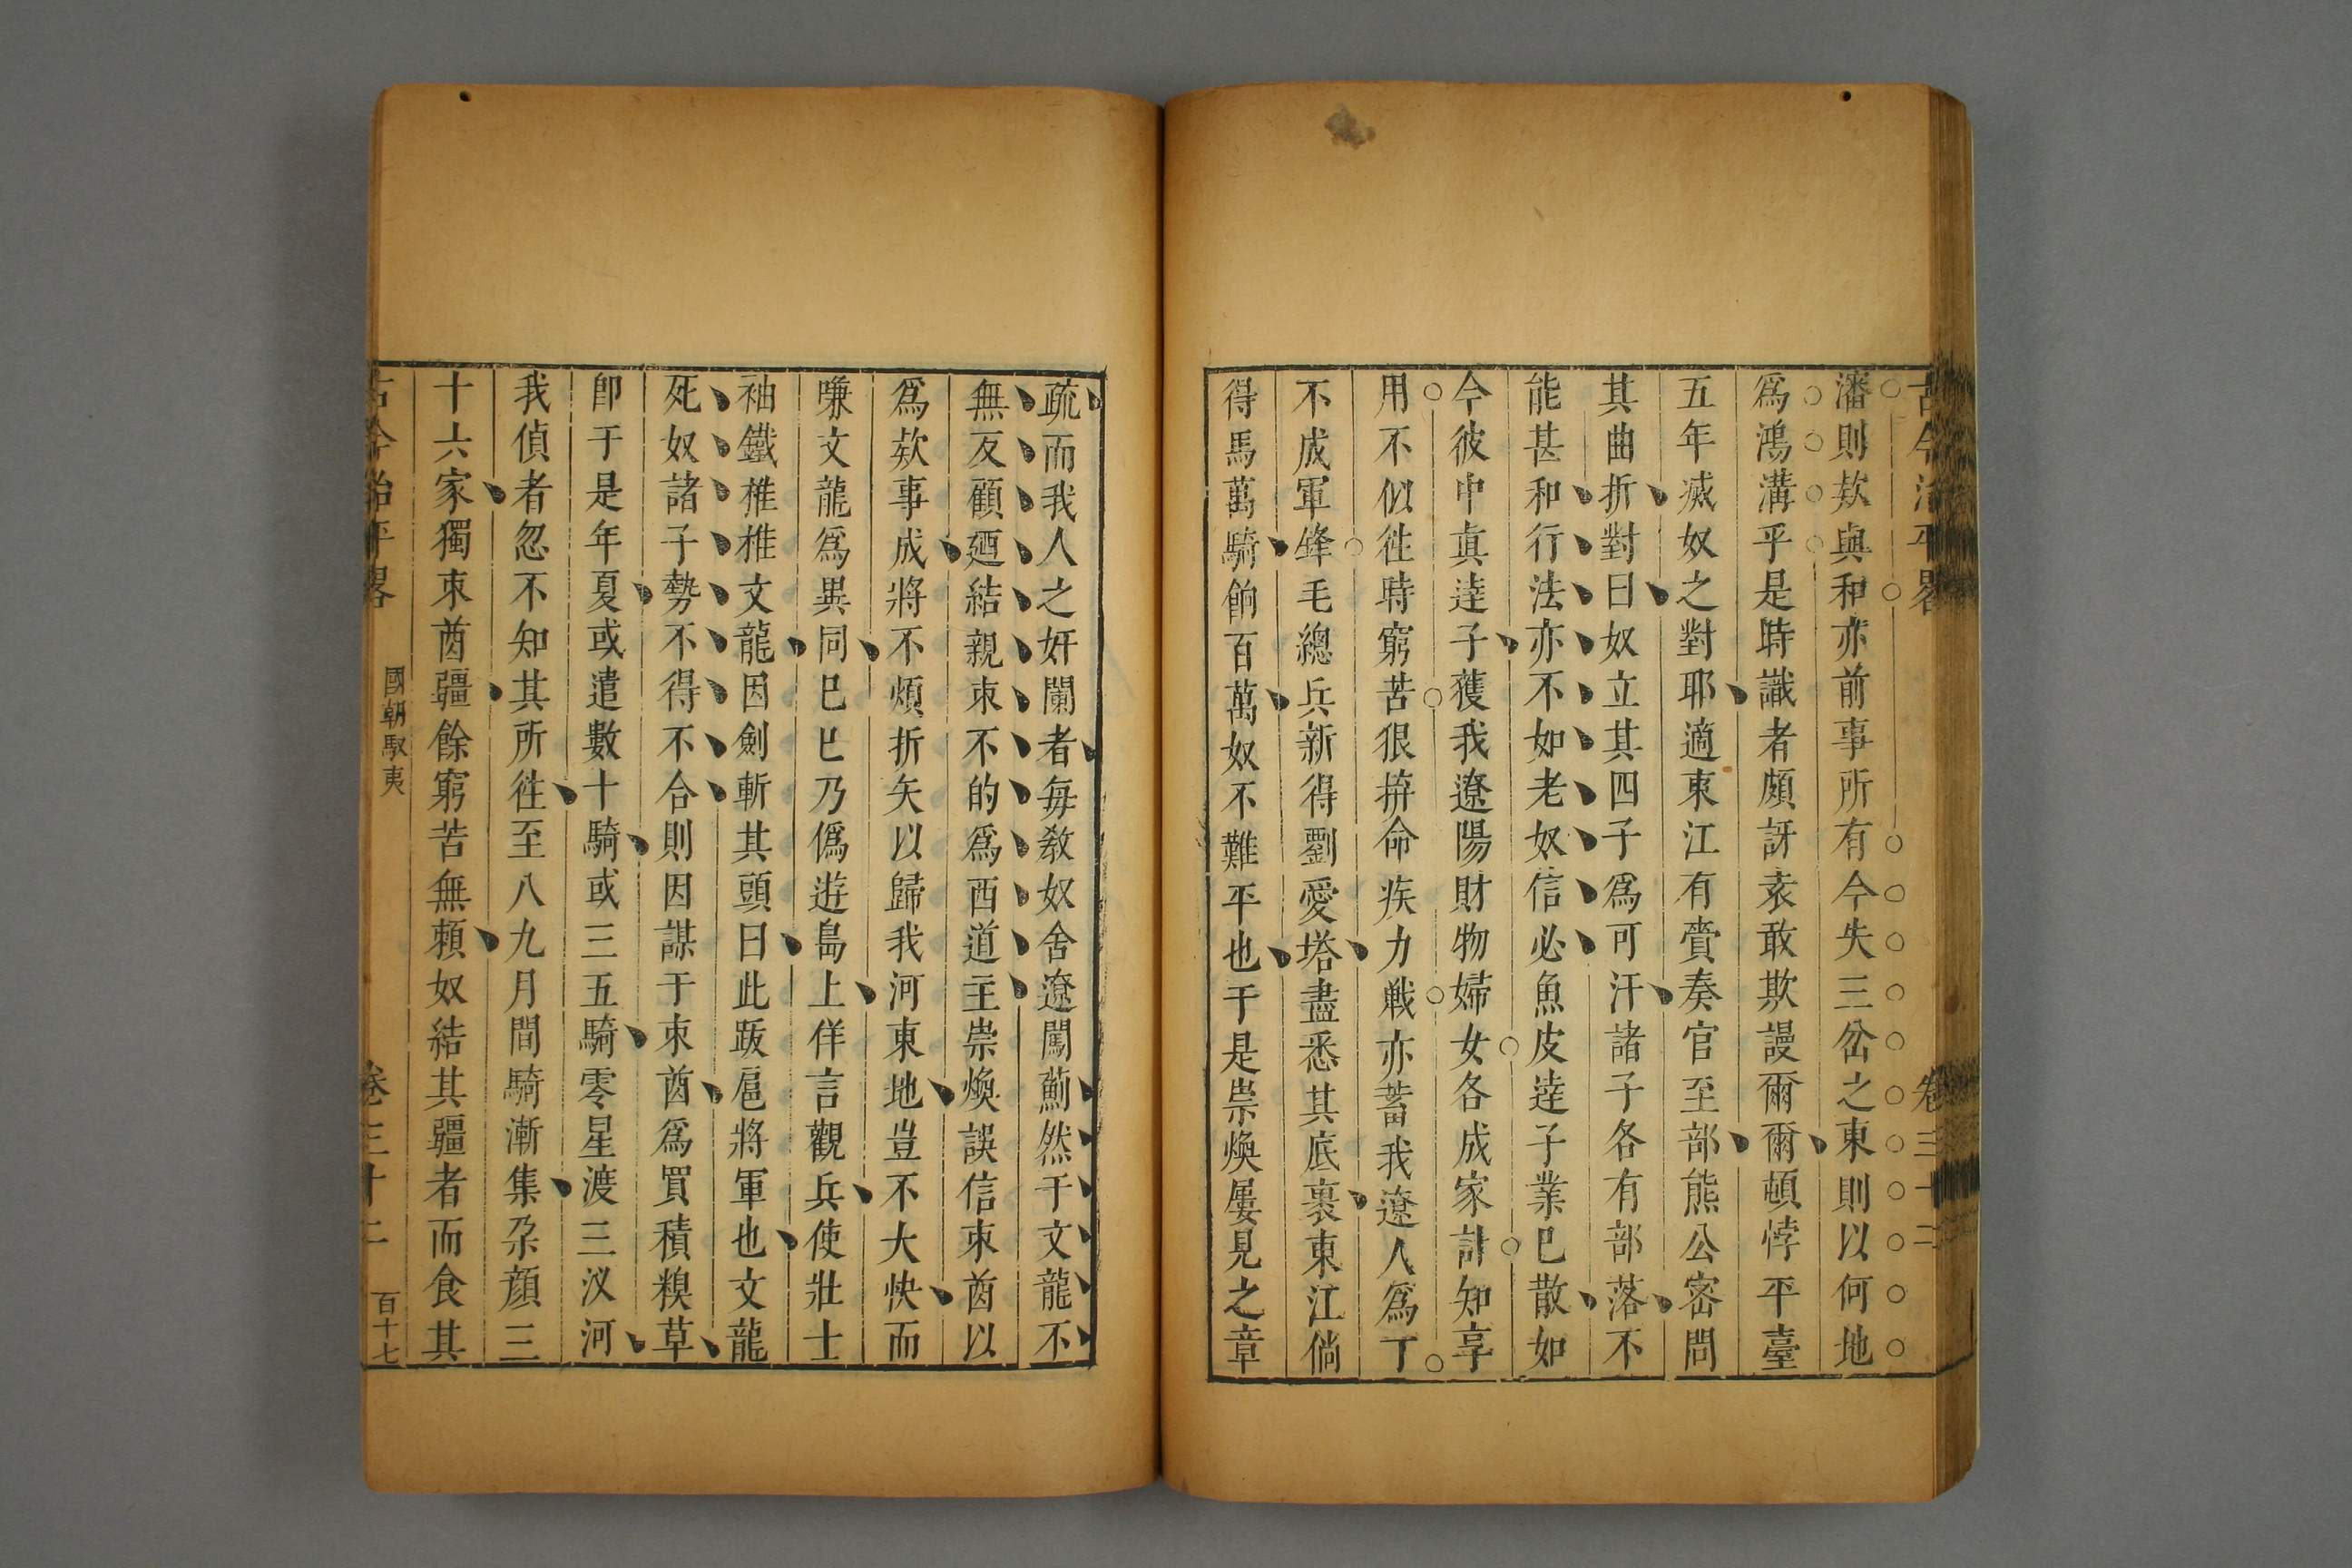 古今治平畧 卷三十二
瀋則欵與和亦前事所有今失三岔之東則以何地
爲鴻溝乎是時識者頗訝袁敢欺謾爾爾頓悖平臺
五年滅奴之對耶適東江有賫奏官至部熊公密問
其曲折對曰奴立其四子爲可汗諸子各有部落不
能甚和行法亦不如老奴信必魚皮逹子業巳散如
今彼中真逹子獲我遼陽財物婦女各成家計知享
用不似徃時窮苦狠拚命疾力戰亦蓄我遼人爲丁
不成軍鋒毛總兵新得劉愛塔盡悉其底裏東江倘
得馬萬騎餉百萬奴不難平也于是崇煥屢見之章
疏而我人之奸闌者每敎奴舍遼闖薊然于文龍不
無反顧廼結親朿不的爲西道主崇煥誤信朿酋以
爲欵事成將不煩折矢以歸我河東地豈不大快而
嗛文龍爲異同巳巳乃僞逰島上佯言觀兵使壯士
袖鐵椎椎文龍因劍斬其頭曰此跋扈將軍也文龍
死奴諸子勢不得不合則因謀于朿酋爲買積糗草
卽于是年夏或遣數十騎或三五騎零星渡三汊河
我偵者忽不知其所徃至八九月間騎漸集朶顔三
十六家獨朿酋疆餘窮苦無頼奴結其疆者而食其
古今治平畧 國朝馭夷 卷三十二 百十七